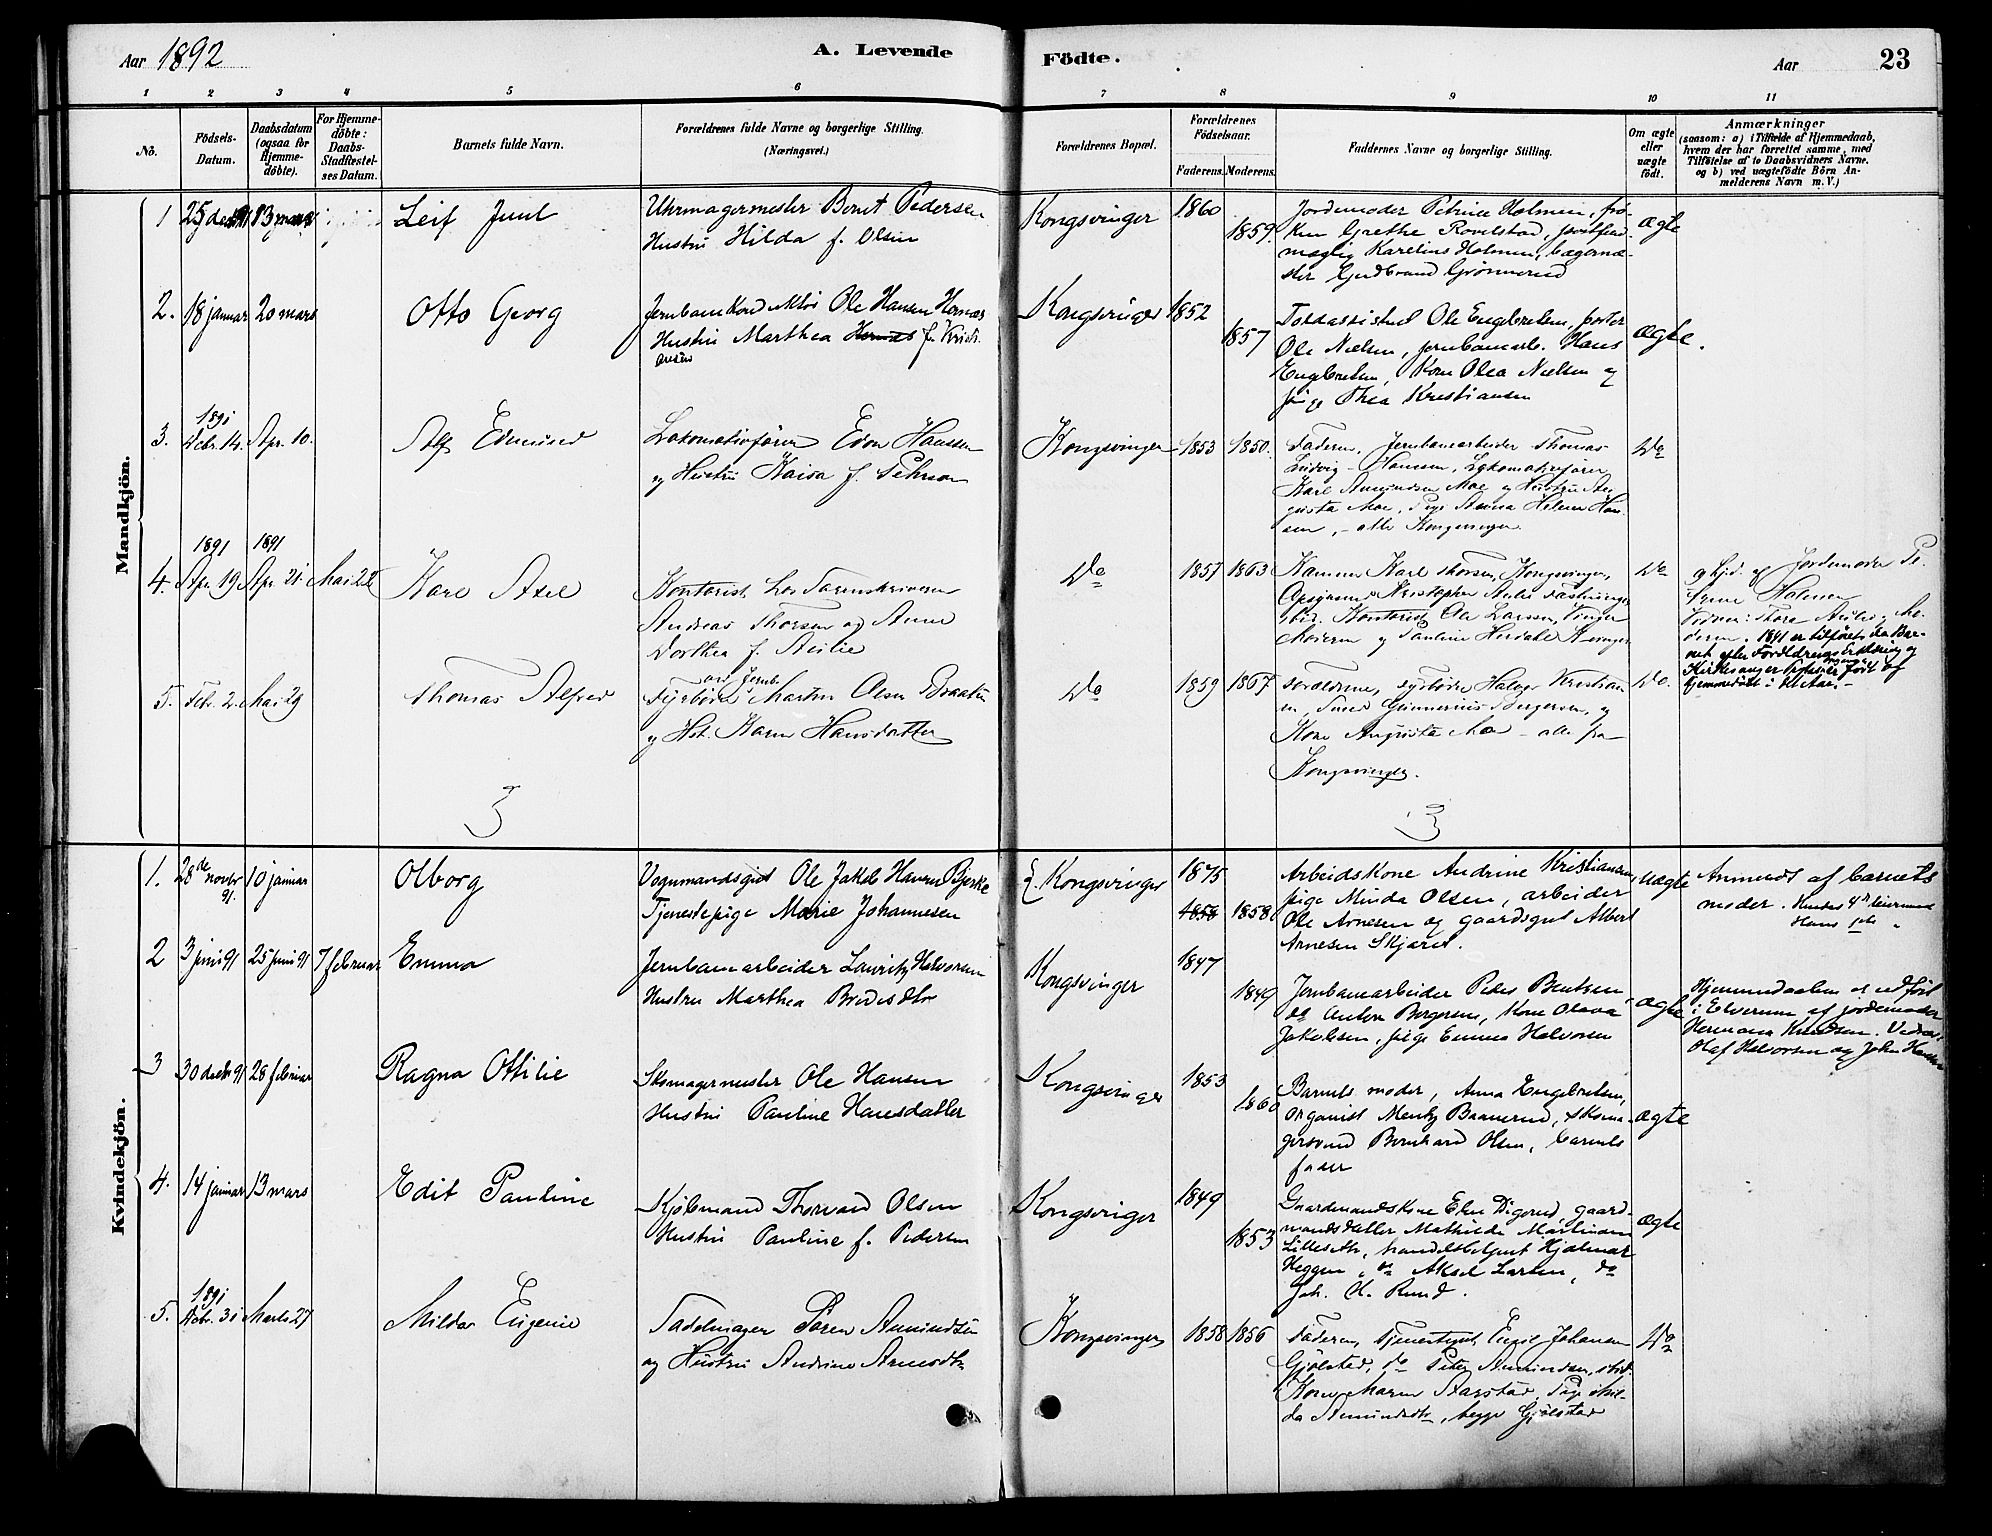 Aar 1892
A. Levende
Födte.
Aar
23
1 2 3 4 5 6 7 8 9 10 11
Nô.
Födsels-
Datum.
Daabsdatum
(ogsaa for
Hjemme-
döbte).
For Hjemme-
döbte:
Daabs-
Stadfæstel-
ses Datum.
Barnets fulde Navn.
Forældrenes fulde Navne og borgerlige Stilling.
(Næringsvei.)
Forældrenes Bopæl.
Forældrenes
Födselsaar.
Faderens. Moderens.
Faddernes Navne og borgerlige Stilling.
Om ægte
eller
uægte
födt.
Anmærkninger
(saasom: a) i Tilfælde af Hjemmedaab,
hvem der har forrettet samme, med
Tilföielse af to Daabsvidners Navne.
og b) ved uægtefödte Börn An-
melderens Navn m. V.)
Mandkjön.
1 25 decbr 91 13 mars
Leif Juul
Uhrmagermester Bernt Pedersen
Hustru Hilda f. Olsen
Kongsvinger
1860
1859.
Jordemoder Petrine Holmen, frø-
ken Grethe Rovelstad,
Karelius Holmen,
Gudbrand Grønnerud
Ægte
2. 18 januar 20 mars
Otto Georg
Jernbanekonduktør Ole Hansen Hornæs
Hustru Marthea f. Kristi-
ansen
Kongsvinger
1852
1857
Toldassistent Ole Engebretsen, porter
Ole Nielsen, jernbanearb. Hans
Engebretsen, Kone Olea Nielsen og
pige Thea Kristiansen
Ægte.
3. 1891 Dcbr. 14. Apr. 10.
Alf Edmund
Lokomotivfører Edv. Hanssen
og Hustru Kaisa f. Pehrson
Kongsvinger
1853 1850.
Faderen, Jernbanearbeider Thomas
Ludvig Hansen, Lokomotivfører
Karl Amundsen Moe og Hustru Au-
gusta Moe, Pige Anna Helene Han-
sen, - alle Kongsvinger
Do
4. 1891 Apr. 19 1891 Apr. 21. Mai 22
Karl Axel
Kontorist hos Sorenskriveren
Andreas Thorsen og Anne
Dorthea f. Aulie
Do
1857 1863
Karl Thorsen, Kongsvinger,
Kristopher Aulie
Kontorist Ole Larsen, Vinger
Moderen og Pauline
Do
Jordemoder Pe-
trine Holmen
Vidner: Thore Aulie, Mo-
deren. 1891 er tilføiet, da Bar-
net efter Forældrenes Erklæring og
Kirkesanger er født og
hjemmedøbt i
5. Febr. 2. Mai 29
Thomas Alfred
Fyrbøder Martin Olsen Braaten
og Hst. Karen Hansdatter
Do
1859 1867
Forældrene, Fyrbøder Halvor Kristian-
sen, Gunnerius Bergersen, og
Kone Augusta Moe - alle fra
Kongsvinger.
Do.
3
3
Kvindekjön.
1. 28de novbr 91. 10 januar
Olborg
Vognmandsgut Ole Jakob Hansen Bjerke
Tjenestepige Marie Johannesen
Kongsvinger
1875
1858 1858
Arbeidskone Andrine Kristiansen,
pige Minda Olsen, arbeider
Ole Arnesen og gaardsgut Albert
Arnesen Skjæret.
Uægte
Anmeldt af barnets
moder. Hendes 4de leiermaal
Hans 1ste "
2 3 juni 91 25 juni 91 7 februar
Emma
Jernbanearbeider Lauritz Halvorsen
Hustru Marthea Bredesdtr
Kongsvinger
1847
1849
Jernbanearbeider Peder Bentsen,
do Anton Borgersen, Kone Olava
Jakobsen, pige Emma Halvorsen
Ægte
Hjemmedaaben er udført
i Elverum af jordemoder
Hermana Knudsen. Vidner:
Olaf Halvorsen og John Hansen
3 30 decbr 91 28 februar
Ragna Ottilie
Skomagermester Ole Hansen
Hustru Pauline Hansdatter
Kongsvinger
1853
1860
Barnets moder, Anna Engebretsen,
organist Mentz Baanerud, skoma-
gersvend Bernhard Olsen, barnets
fader
Ægte
4. 14 januar 13 mars
Edit Pauline
Kjøbmand Thorvald Olsen
Hustru Pauline f. Pedersen
Kongsvinger
1849
1853
Gaardmandskone Elen Digerud, gaard-
mandsdatter Mathilde Martinsen
Lilleseth, handelsbetjent Hjalmar
Heggen, do Aksel Larsen, do
Joh. Rund.
Ægte
5. 1891 Dcbr. 31 Marts 27
Milda Eugenie
Sadelmager Søren Amundsen
og Hustru Andrine Arnesdtr
Kongsvinger
1858 1856
Faderen, Tjenestegut Emil Johansen
Gjölstad, do Peter Amundsen, ibid.
Kone Maren Aarstad, Pige Mil-
da Amundsdtr, begge Gjölstad
Do